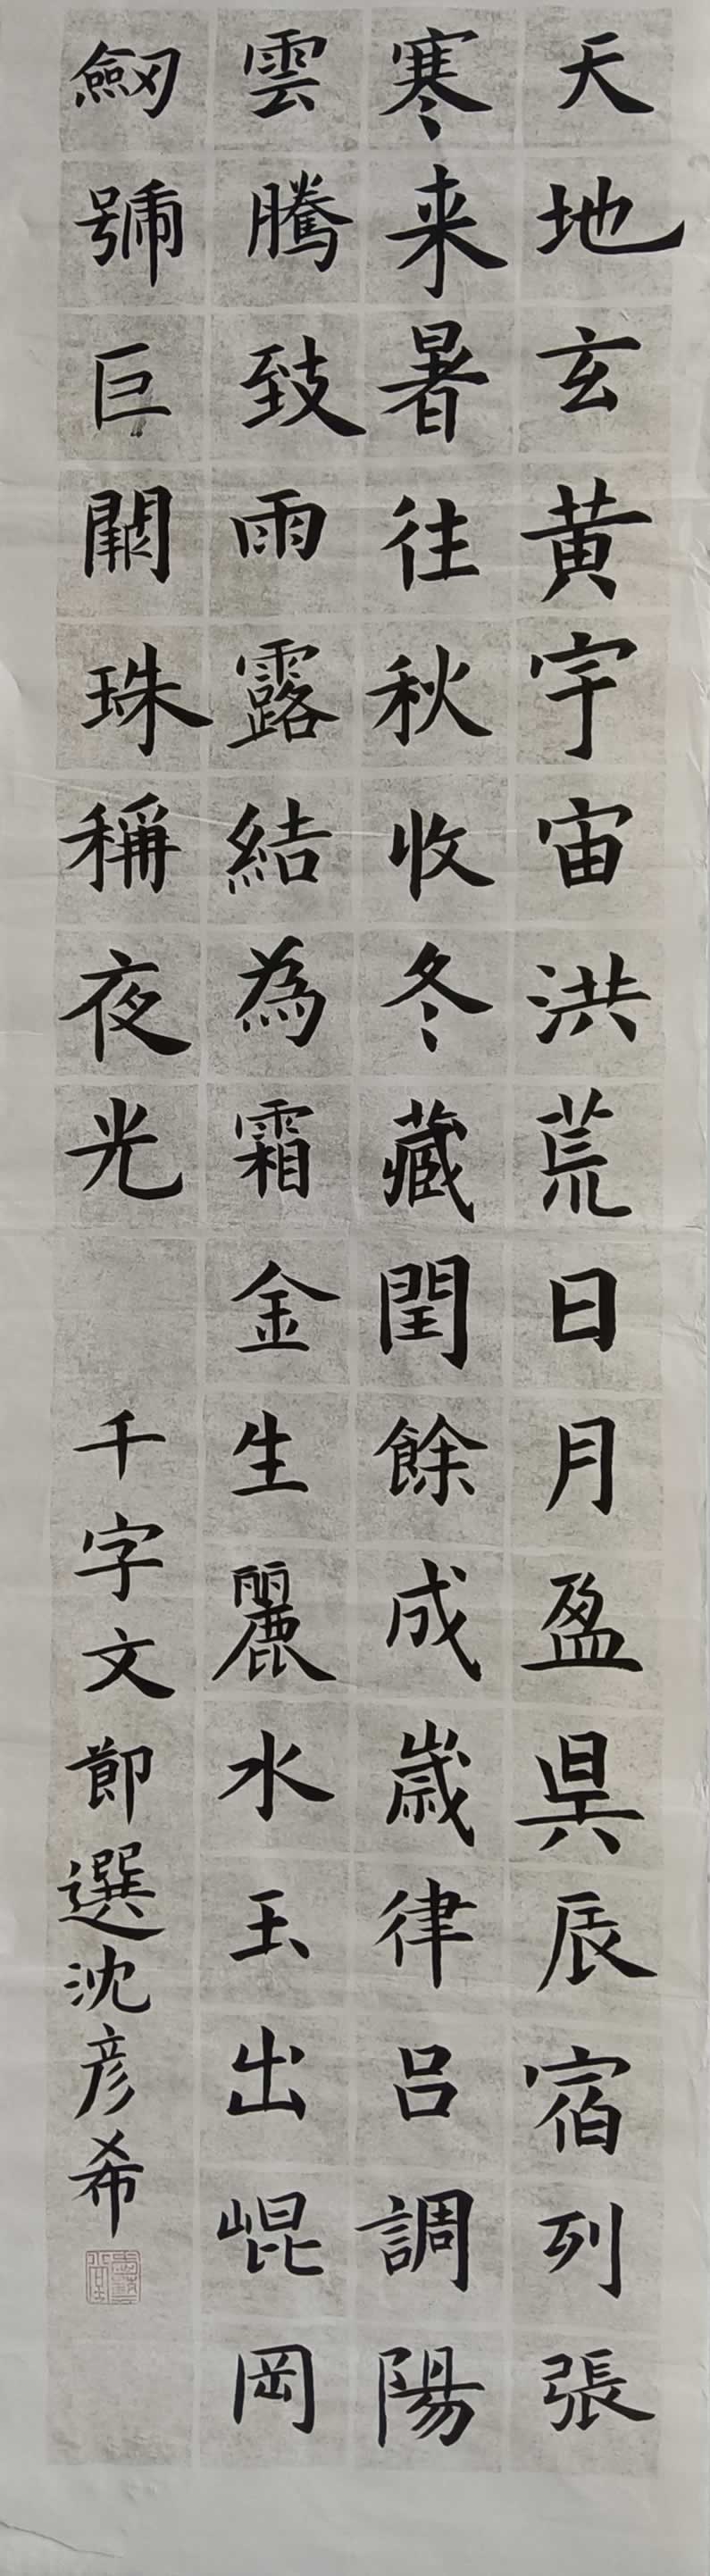 天地玄黄宇宙洪荒日月盈昃辰宿列張
寒来暑往秋收冬藏閏餘成嵗律吕調陽
雲騰致雨露結為霜金生麗水玉出崐岡
劒號巨闕珠稱夜光 千字文節選沈彦希